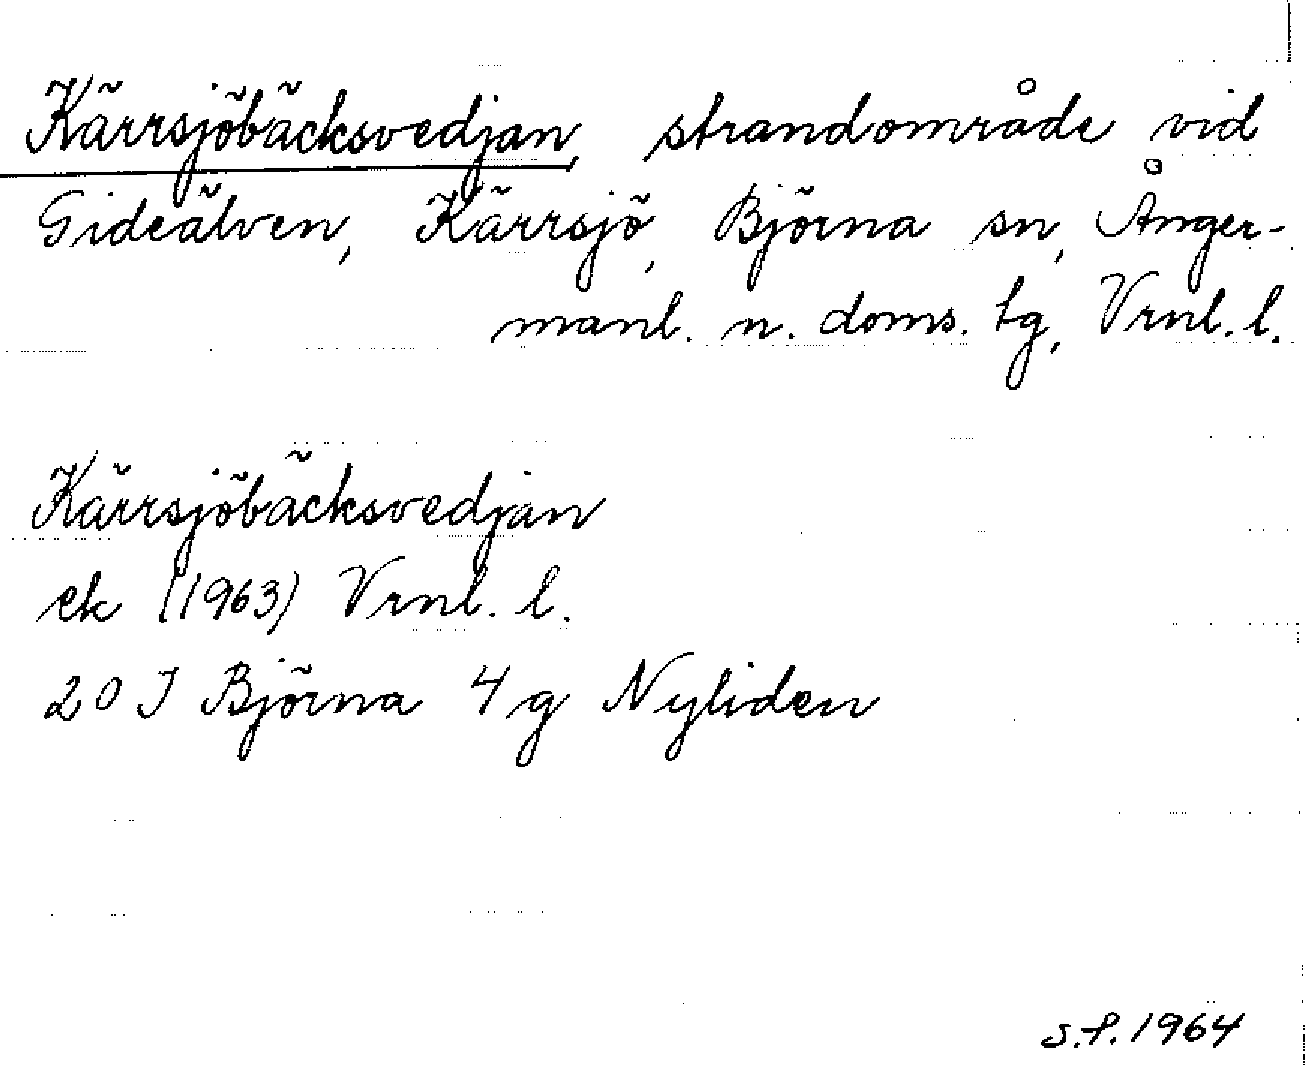 Kärrsjöbäcksvedjan, strandområde vid
Gideälven, Kärrsjö, Björna sn, Ånger-
manl. n. doms. tg, Vrnl. l.
Kärrsjöbäcksvedjan
ek (1963) Vrnl. l.
20 I Björna 4 g Nyliden
S.P. 1964